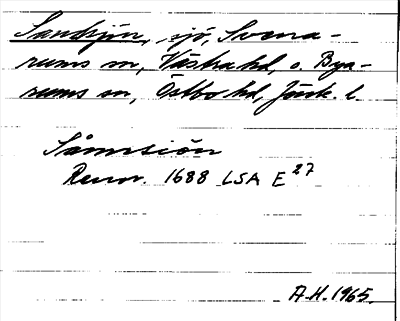 Sandsjön, sjö, Svena-
rums sn, Västra hd, o. Bya-
rums sn, Östbo hd, Jönk. l.
Sånnsiön
Renov. 1688 LSA E 27
A.H. 1965.